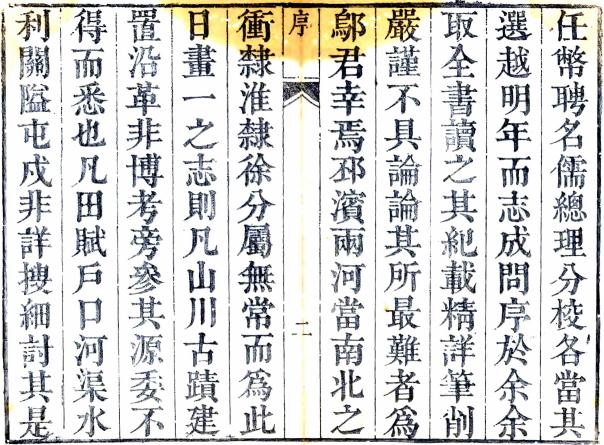 任幣聘名儒總理分校各當其
選越明年而志成問序於余余
取全書讀之其紀載精詳筆削
嚴謹不具論論其所最難者爲
鄔君幸焉邳濱兩河當南北之
序
二
衝隸淮隸徐分屬無常而爲此
日畫一之志則凡山川古蹟建
置沿革非博考旁參其源委不
得而悉也凡田賦戶口河渠水
利關隘屯戍非詳搜細討其是